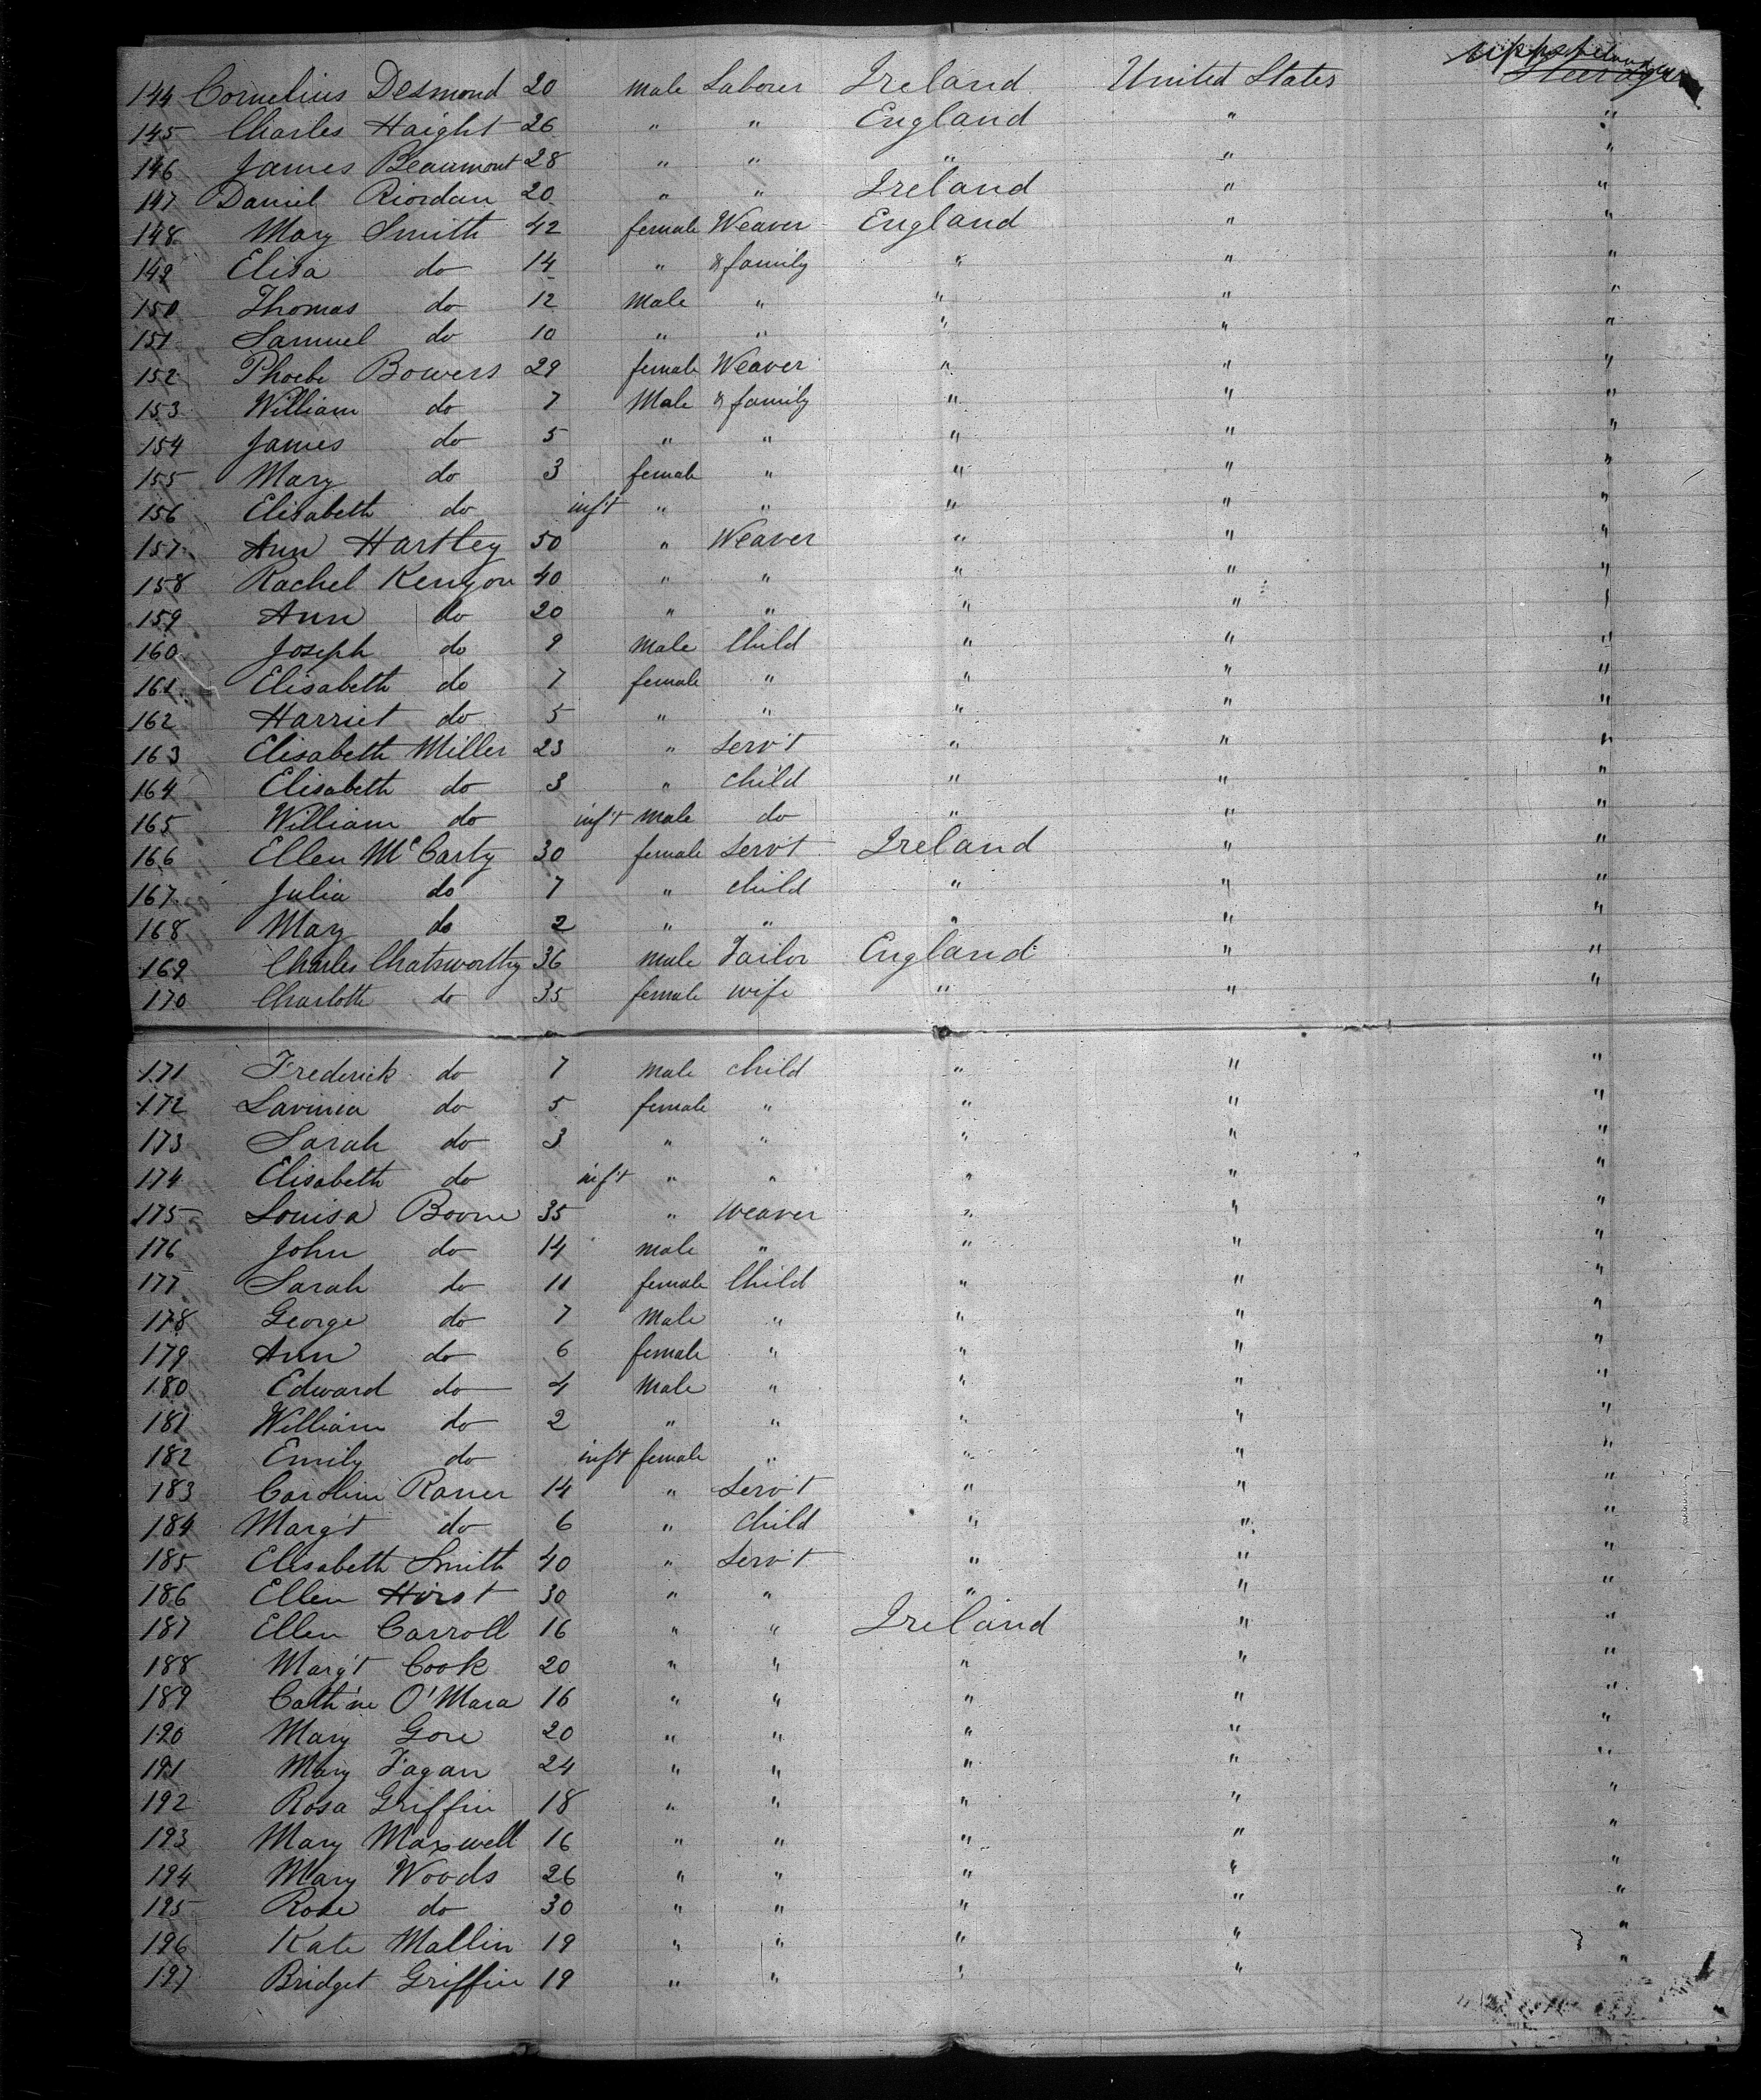 144 Cornelius Desmond 20 male Laborer Ireland United States
145 Charles Haight 26 " " England " "
146 James Beaumont 28 " " " " "
147 Daniel Riordan 20 " " Ireland " "
148 Mary Smith 42 female Weaver England " "
149 Elisa do 14 " & family " " "
150 Thomas do 12 Male " " " "
151 Samuel do 10 " " " " "
152 Phoebe Bowers 29 female Weaver " " "
153 William do 7 Male & family " " "
154 James do 5 " " " " "
155 Mary do 3 female " " " "
156 Elisabeth do inf't " " " " "
157 Ann Hartley 50 " Weaver " " "
158 Rachel Kenyon 40 " " " " "
159 Ann do 20 " " " " "
160 Joseph do 9 male Child " " "
161 Elisabeth do 7 female " " " "
162 Harriet do 5 " " " " "
163 Elisabeth Miller 23 " Serv't " " "
164 Elisabeth do 3 " child " " "
165 William do inf't male do " " "
166 Ellen McCarty 30 female Serv't Ireland " "
167 Julia do 7 " child " " "
168 Mary do 2 " " " " "
169 Charles Chatsworthy 36 male Tailor England " "
170 Charlotte do 35 female wife " " "
171 Frederick do 7 male child " " "
172 Lavinia do 5 female " " " "
173 Sarah do 3 " " " " "
174 Elisabeth do inf't " " " " "
175 Louisa Boone 35 " Weaver " " "
176 John do 14 male " " " "
177 Sarah do 11 female Child " " "
178 George do 7 Male " " " "
179 Ann do 6 female " " " "
180 Edward do 4 Male " " " "
181 William do 2 " " " " "
182 Emily do inf't female " " " "
183 Caroline 14 " Serv't " " "
184 Marg't do 6 " Child " " "
185 Elisabeth Smith 40 " Serv't " " "
186 Ellen Hirst 30 " " " " "
187 Ellen Carroll 16 " " Ireland " "
188 Marg't Cook 20 " " " " "
189 Cath'ne O'Mara 16 " " " " "
190 Mary Gore 20 " " " " "
191 Mary Fagan 24 " " " " "
192 Rosa Griffin 18 " " " " "
193 Mary Maxwell 16 " " " " "
194 Mary Woods 26 " " " " "
195 Rose do 30 " " " " "
196 Kate Mallin 19 " " " " "
197 Bridget Griffin 19 " " " " "